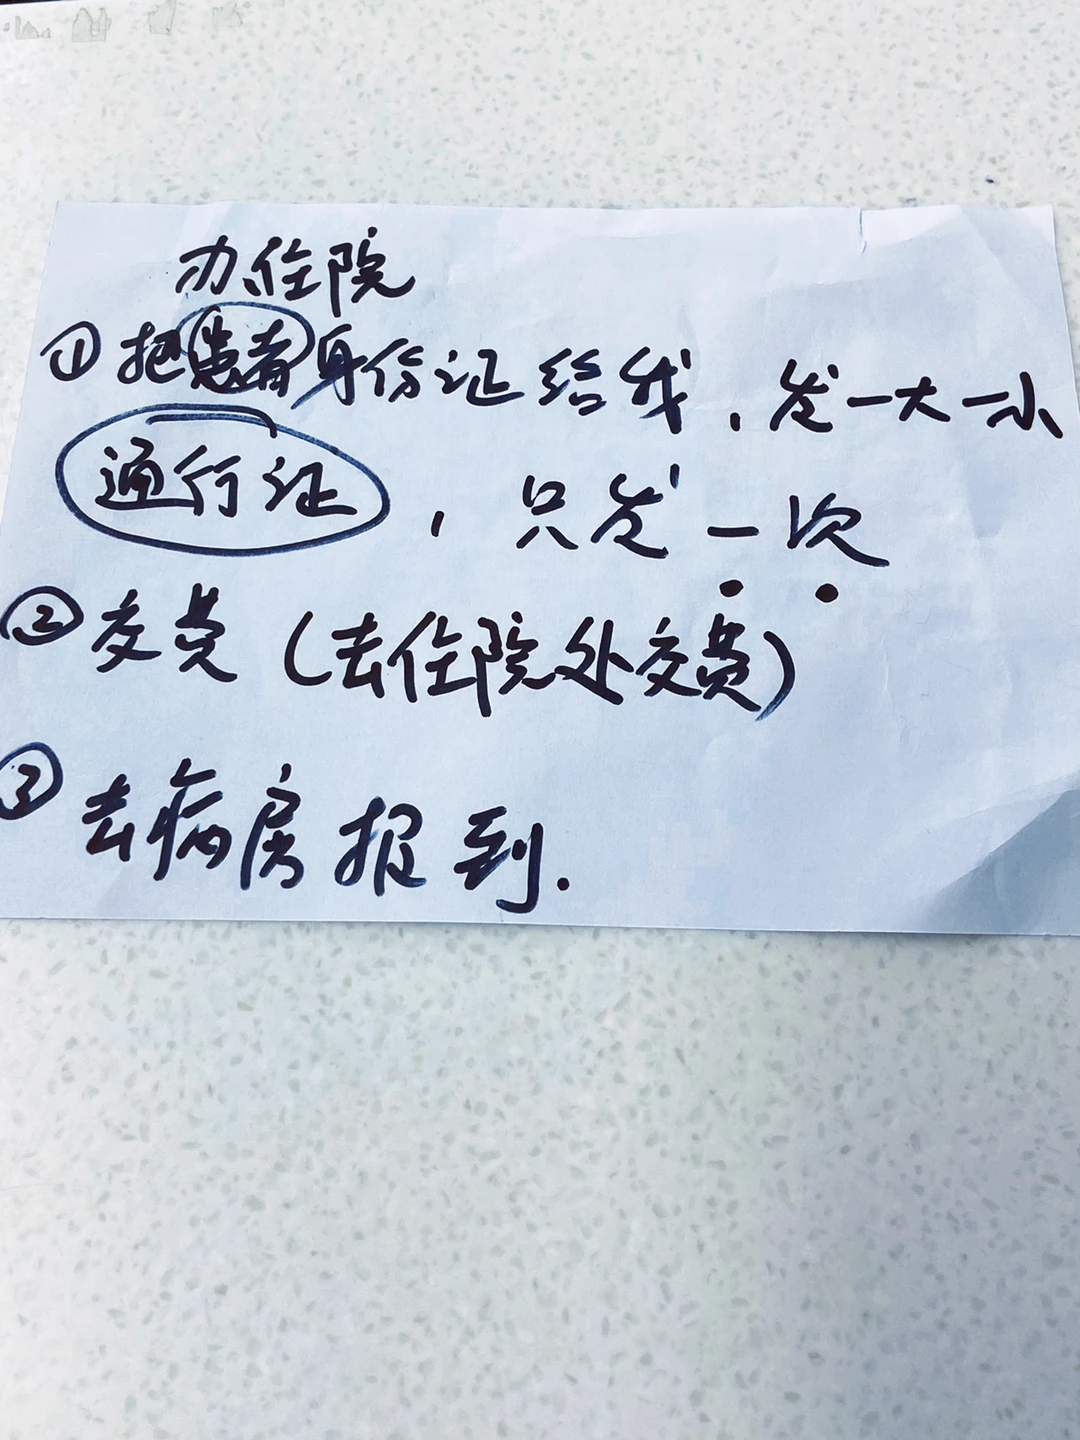 办住院
①把患者身份证给我，发一大一小
通行证，只发一次
②交费（去住院处交费）
③去病房报到.